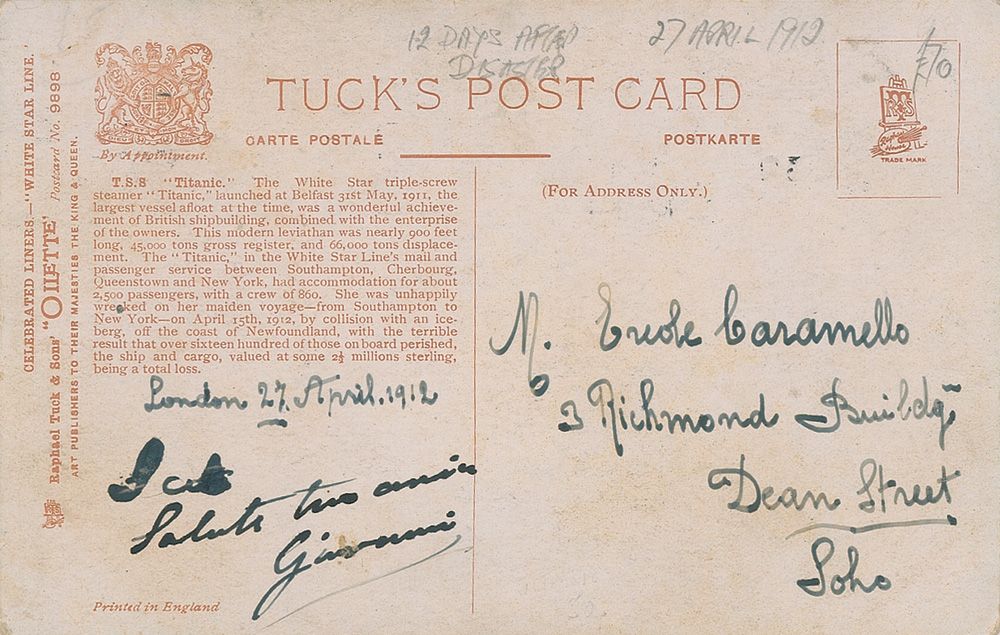 12 DAYS AFTER
DISASTER
27 APRIL 1912
TUCK'S POST CARD
CARTE POSTALE
POSTKARTE
By Appointment.
TRADE MARK
(FOR ADDRESS ONLY.)
CELEBRATED LINERS.—"WHITE STAR LINE."
Raphael Tuck & Sons' "OILETTE" Postcard No. 9898
ART PUBLISHERS TO THEIR MAJESTIES THE KING & QUEEN.
T.S.S "Titanic." The White Star triple-screw
steamer "Titanic," launched at Belfast 31st May, 1911, the
largest vessel afloat at the time, was a wonderful achieve-
ment of British shipbuilding, combined with the enterprise
of the owners. This modern leviathan was nearly 900 feet
long, 45,000 tons gross register, and 66,000 tons displace-
ment. The "Titanic," in the White Star Line's mail and
passenger service between Southampton, Cherbourg,
Queenstown and New York, had accommodation for about
2,500 passengers, with a crew of 860. She was unhappily
wrecked on her maiden voyage—from Southampton to
New York—on April 15th, 1912, by collision with an ice-
berg, off the coast of Newfoundland, with the terrible
result that over sixteen hundred of those on board perished,
the ship and cargo, valued at some 2½ millions sterling,
being a total loss.
London 27. April. 1912
Salute tuo
Giovanni
M. Ercole Caramello
3 Richmond Buildgs
Dean Street
Soho
Printed in England